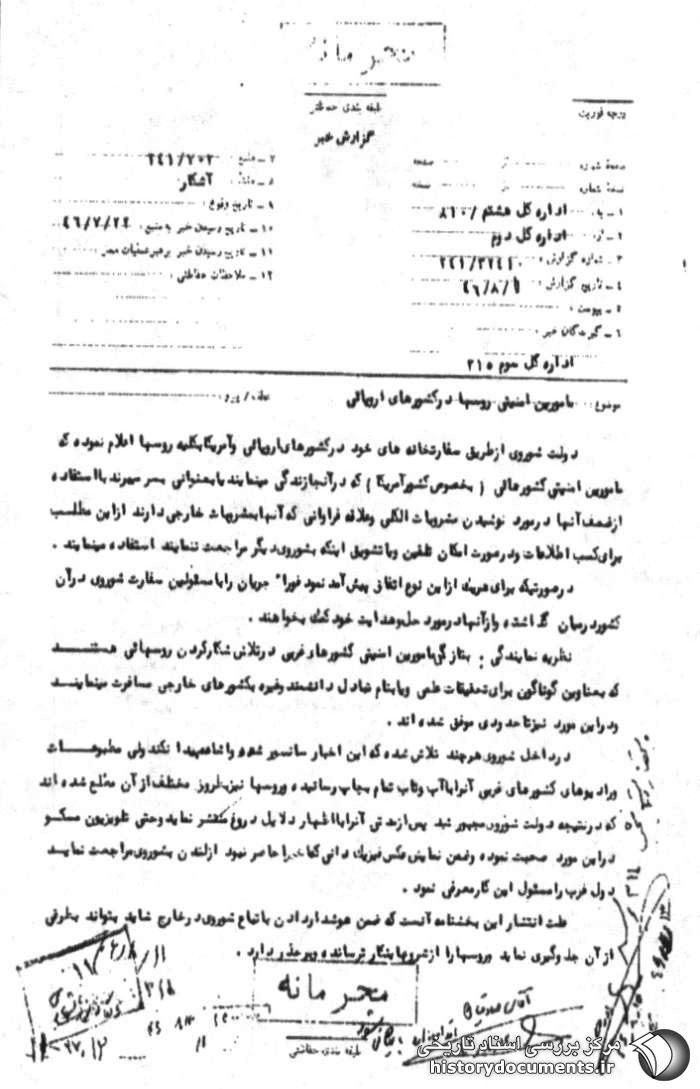 محرمانه
طبقه بندی حفاظتی
درجه فوریت
گزارش خبر
صفحهٔ شماره از صفحه
نسخهٔ شماره نسخه
۱ ـ به اداره کل هشتم / ۸۱۰
۲ ـ از اداره کل دوم
۳ ـ شماره گزارش ۲۴۱/۳۲۴۱۰
۴ ـ تاریخ گزارش ۴۶/۸/۱
۵ ـ پیوست
۶ ـ گیرندگان خبر
اداره کل سوم ۲۱۵
۷ ـ منبع ۲۴۱/۲۰۲
۸ ـ منشاء آشکار
۹ ـ تاریخ وقوع
۱۰ ـ تاریخ رسیدن خبر به منبع ۴۶/۷/۲۴
۱۱ ـ تاریخ رسیدن خبر برهبر عملیات محل
۱۲ ـ ملاحظات حفاظتی
موضوع مامورین امنیتی روسها در کشورهای اروپائی
دولت شوروی از طریق سفارتخانه های خود در کشورهای اروپائی و آمریکا بکلیه روسها اعلام نموده که
مامورین امنیتی کشورهائی ( بخصوص کشور آمریکا ) که در آنجا زندگی مینمایند یا بعنوانی بسر میبرند با استفاده
از ضعف آنها در مورد نوشیدن مشروبات الکلی و علاقه فراوانی که آنها بمشروبات خارجی دارند از این مطلب
برای کسب اطلاعات و در صورت امکان تلقین و یا تشویق اینکه بشوروی دیگر مراجعت ننمایند استفاده مینمایند .
در صورتیکه برای هریک از این نوع اتفاق پیش آمد نمود فوراً جریان را با مسئولین سفارت شوروی در آن
کشور در میان گذاشته و از آنها در مورد حل و هدایت خود کمک بخواهند .
نظریه نمایندگی . بتازگی مامورین امنیتی کشورهای غربی در تلاش شکار کردن روسهائی هستند
که بعناوین گوناگون برای تحقیقات علمی و یا بنام تبادل دانشمند و غیره بکشورهای خارجی مسافرت مینمایند
و در این مورد نیز تا حدودی موفق شده اند .
در داخل شوروی هرچند تلاش شده که این اخبار سانسور شده و اشاعه پیدا نکند ولی مطبوعات
و رادیوهای کشورهای غربی آنرا با آب و تاب تمام بچاپ رسانیده و روسها نیز بطرز مختلف از آن مطلع شده اند
که در نتیجه دولت شوروی مجبور شد پس از مدتی آنرا با اظهار دلایل دروغ منتشر نماید و حتی تلویزیون مسکو
در این مورد صحبت نموده و ضمن نمایش عکس فیزیک دانی که اخیرا حاضر نمود از لندن بشوروی مراجعت نماید
دول غرب را مسئول این کار معرفی نمود .
علت انتشار این بخشنامه آنست که ضمن هوشدار دادن باتباع شوروی در خارج شاید بتواند بطرقی
از آن جلوگیری نماید و روسها را از غربیها بترساند و بر حذر دارد .
محرمانه
طبقه بندی حفاظتی
مرکز بررسی اسناد تاریخی
historydocuments.ir